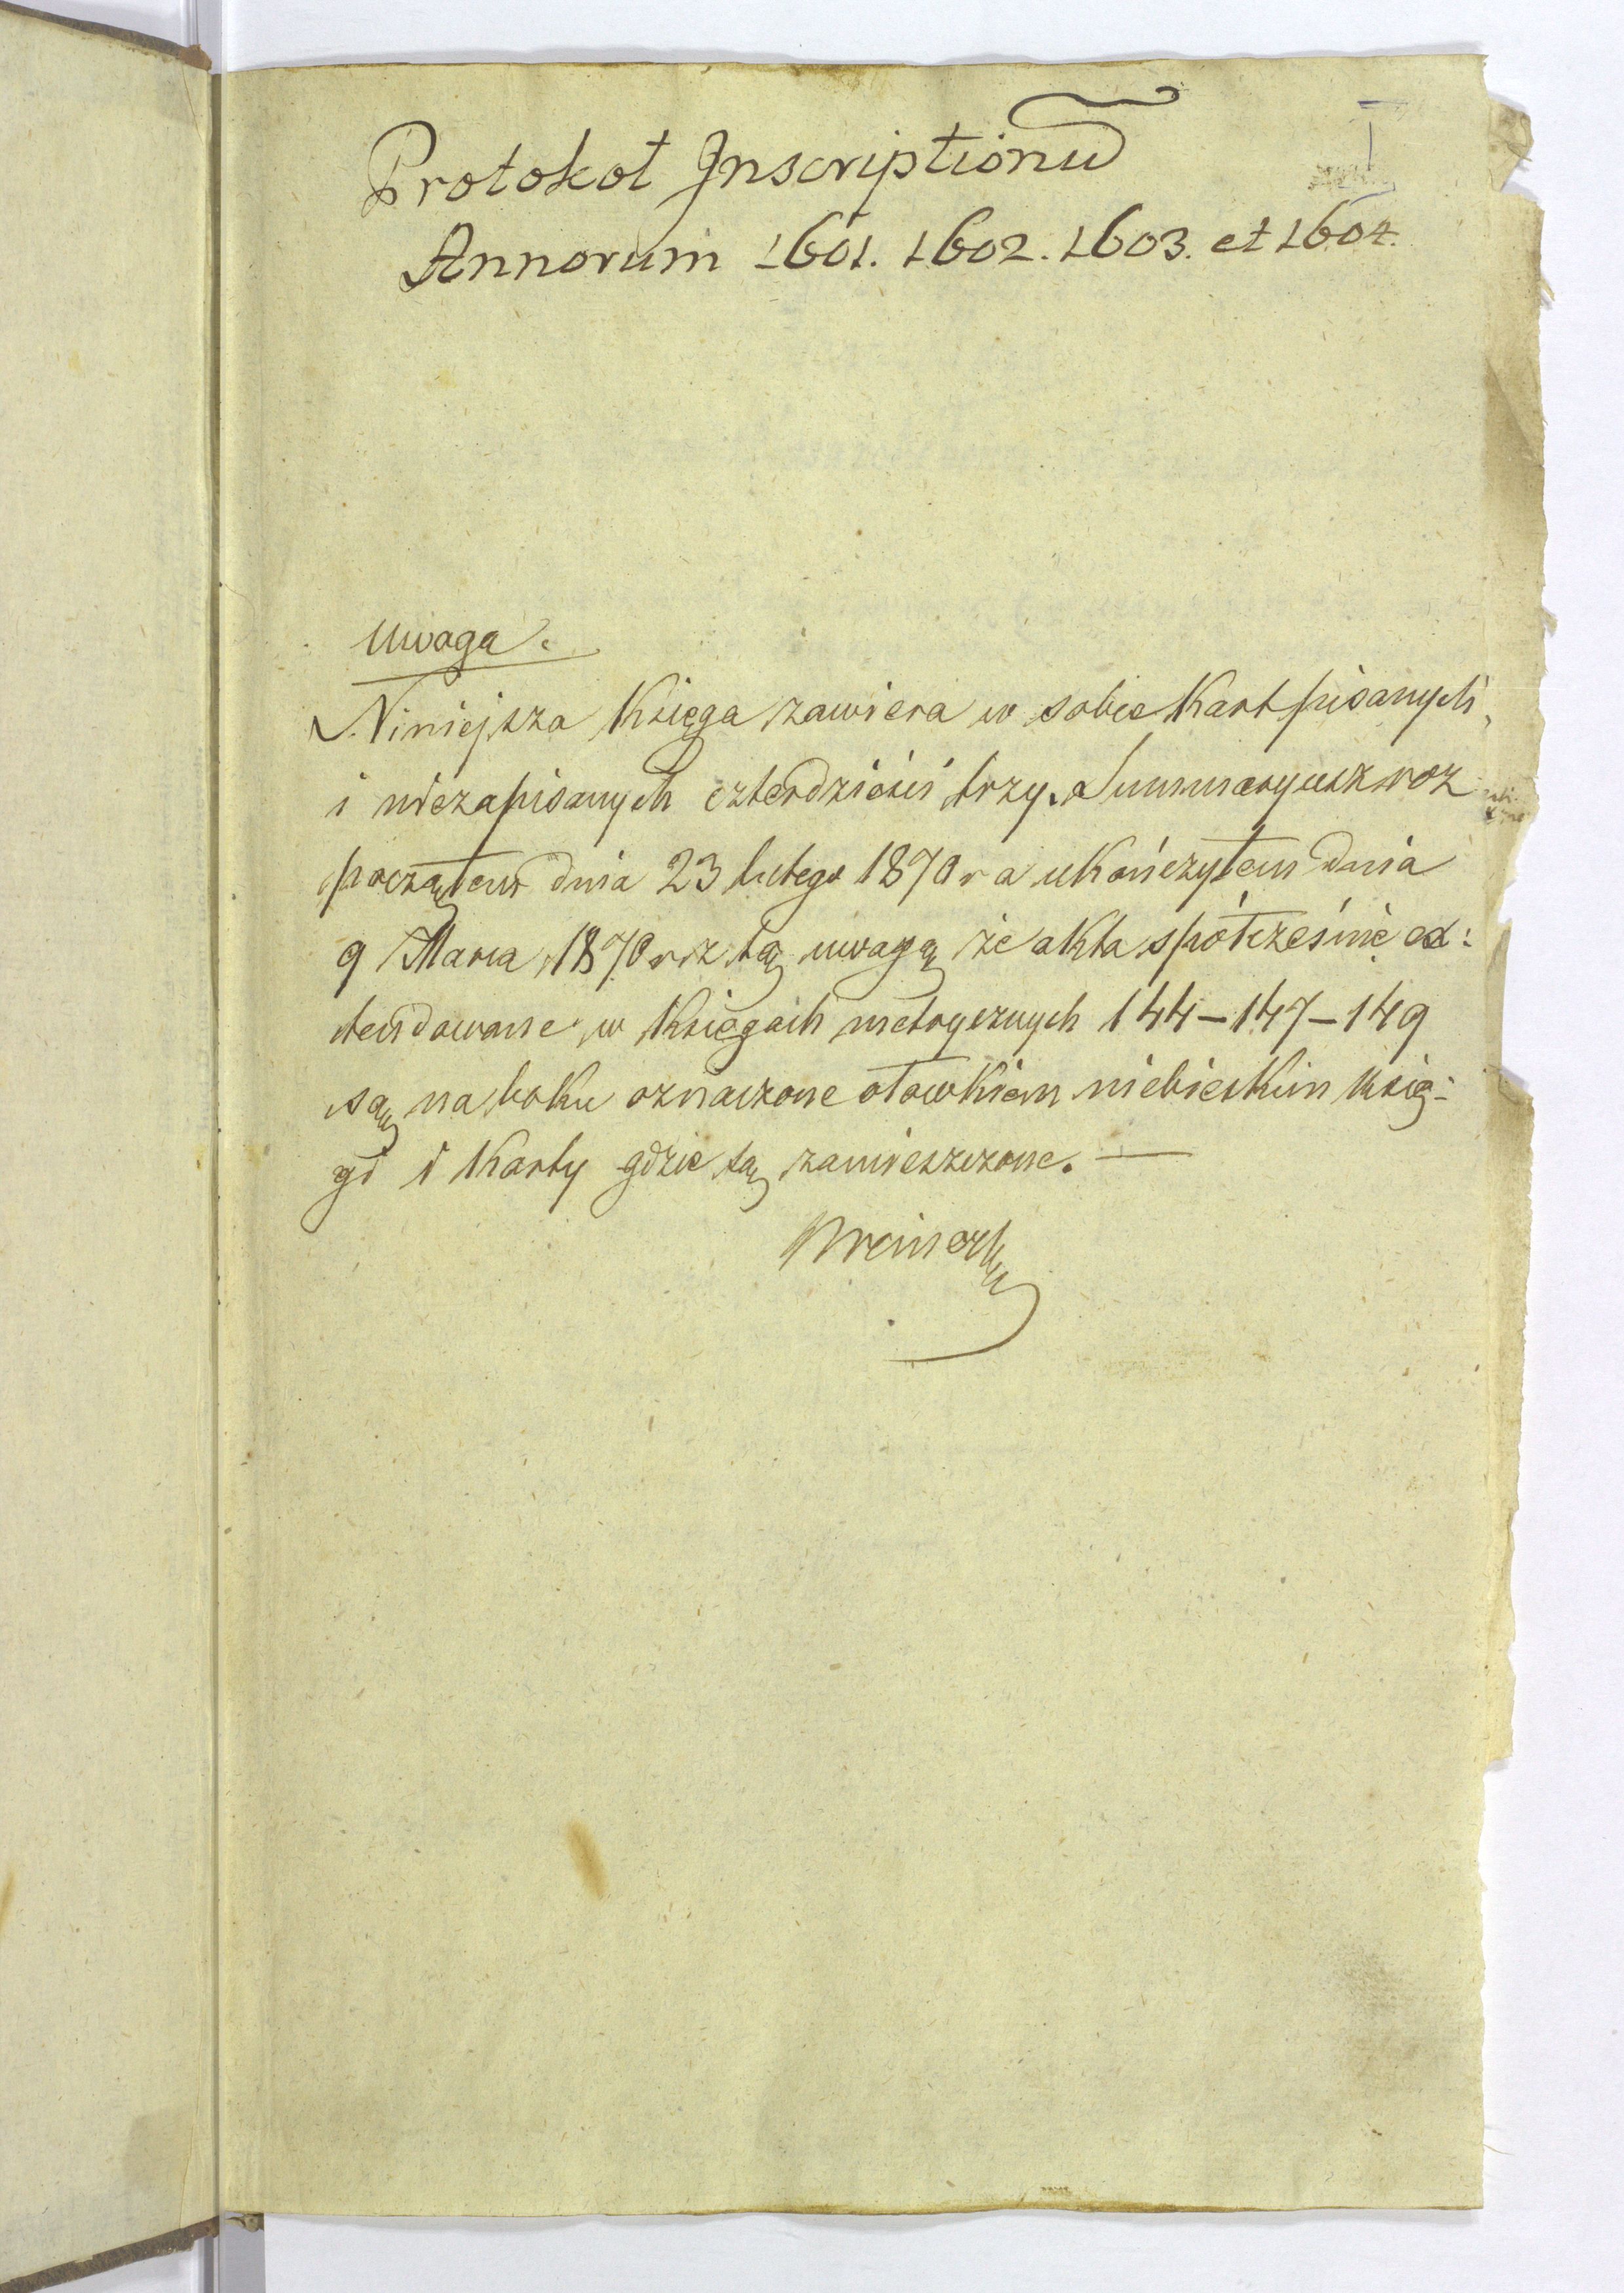 Protokoł Inscriptionũ
Annorum 1601. 1602. 1603. et 1604.
I
Uwaga.
Niniejsza Księga zawiera w sobie Kart pisanych
i niezapisanych czterdzieści trzy. Summaryusz roz
począłem dnia 23 lutego 1870 r a ukończyłem dnia
9 Marca 1870 r z tą uwagą że akta spółcześnie ex:
tendowane w Księgach metrycznych 144–147–149
są na boku oznaczone ołowkiem niebieskim księ:
gi i Karty gdzie są zamieszczone. —